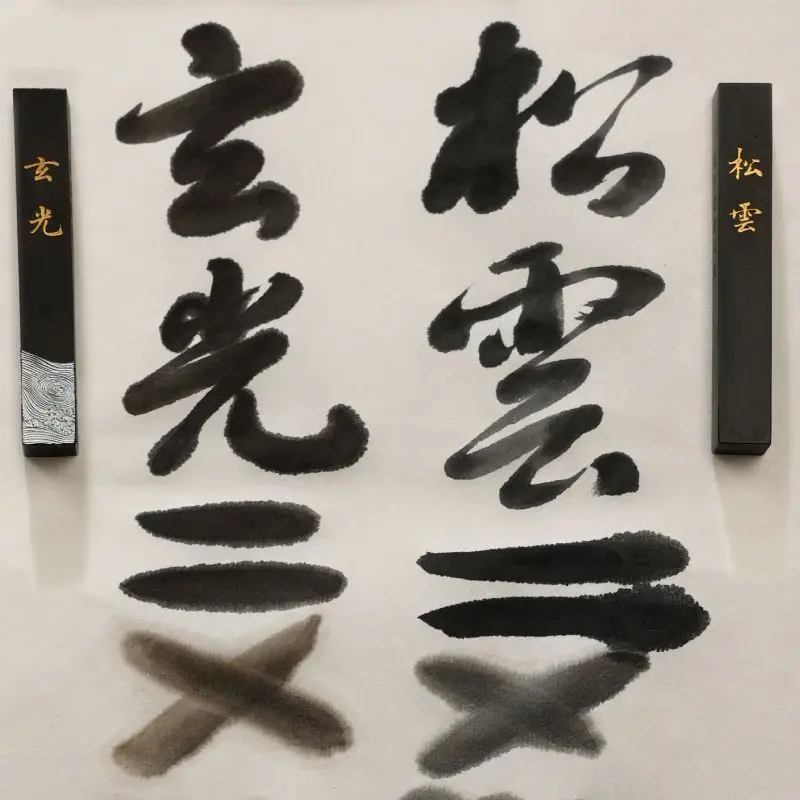 松雲
玄光
松雲
玄光